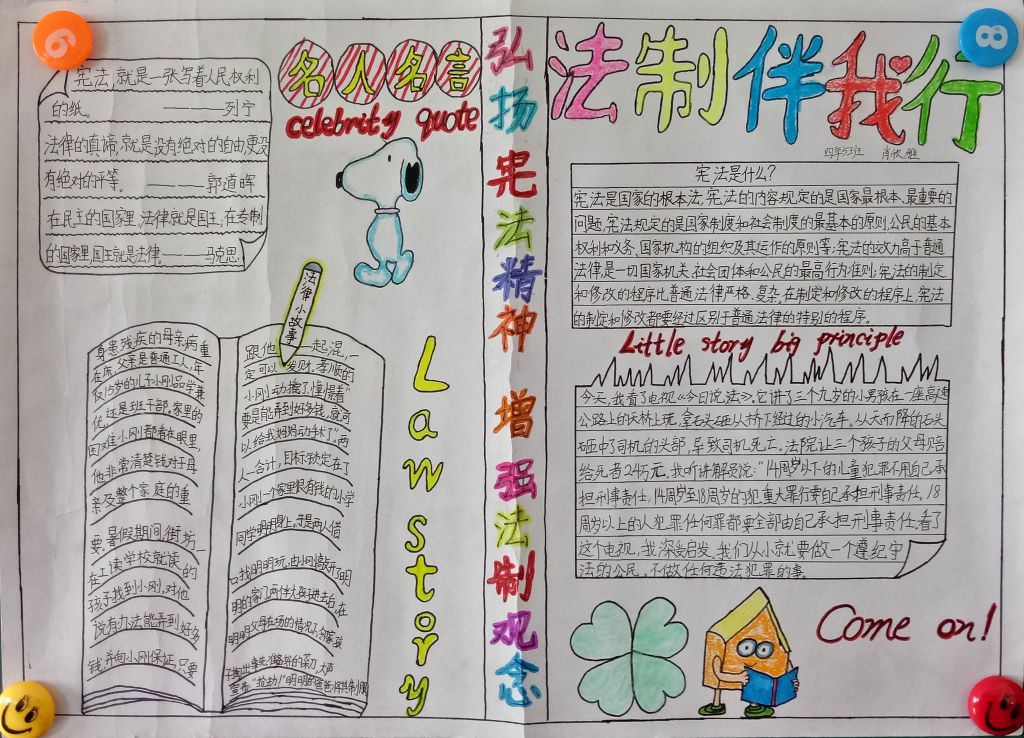 法制伴我行
四年5班
弘扬宪法精神 增强法制观念
名人名言
celebrity quote
宪法,就是一张写着人民权利
的纸。 ————列宁
法律的真谛,就是没有绝对的自由,更没
有绝对的平等。 ———郭道晖
在民主的国家里,法律就是国王;在专制
的国家里,国王就是法律。———马克思
法律小故事
Law story
身患残疾的母亲病重
在床,父亲是普通工人,年
仅15岁的儿子小刚品学兼
优,还是班干部,家里的
困难小刚都看在眼里,
他非常清楚钱对于母
亲及整个家庭的重
要。暑假期间,街坊一
在工读学校就读的
孩子找到小刚,对他
说有办法能弄到好多
钱,并向小刚保证,只要
跟他一起混,一
定可以发财,孝顺的
小刚动摇了,憧憬着"
要是能弄到好多钱,就可
以给我妈妈动手术了"。两
人一合计,目标锁定在了
小刚一个家里很有钱的小学
同学明明身上。于是两人借
口找明明玩,由小刚搞开了明
明的家门,两伴大孩进去后,在
明明父母在场的情况下,
宪法是什么?
宪法是国家的根本法,宪法的内容规定的是国家最根本、最重要的
问题,宪法规定的是国家制度和社会制度的最基本的原则,公民的基本
权利和义务、国家机构的组织及其运作的原则等;宪法的效力高于普通
法律,是一切国家机关、社会团体和公民的最高行为准则;宪法的制定
和修改的程序比普通法律严格、复杂,在制定和修改的程序上,宪法
的制定和修改都要经过区别于普通法律的特别的程序。
Little story big principle
今天,我看了电视《今日说法》。它讲了三个九岁的小男孩在一座高速
公路上的天桥上玩,拿石头砸从桥下经过的小汽车。从天而降的石头
砸中司机的头部,导致司机死亡。法院让三个孩子的父母赔
给死者245元。我听讲解员说:"14周岁以下的儿童犯罪不用自己承
担刑事责任,14周岁到18周岁的犯重大罪行要自己承担刑事责任,18
周岁以上的人犯罪任何罪都要全部由自己承担刑事责任。看了
这个电视,我深受启发,我们从小就要做一个遵纪守
法的公民,不做任何违法犯罪的事。
Come on!
9
8